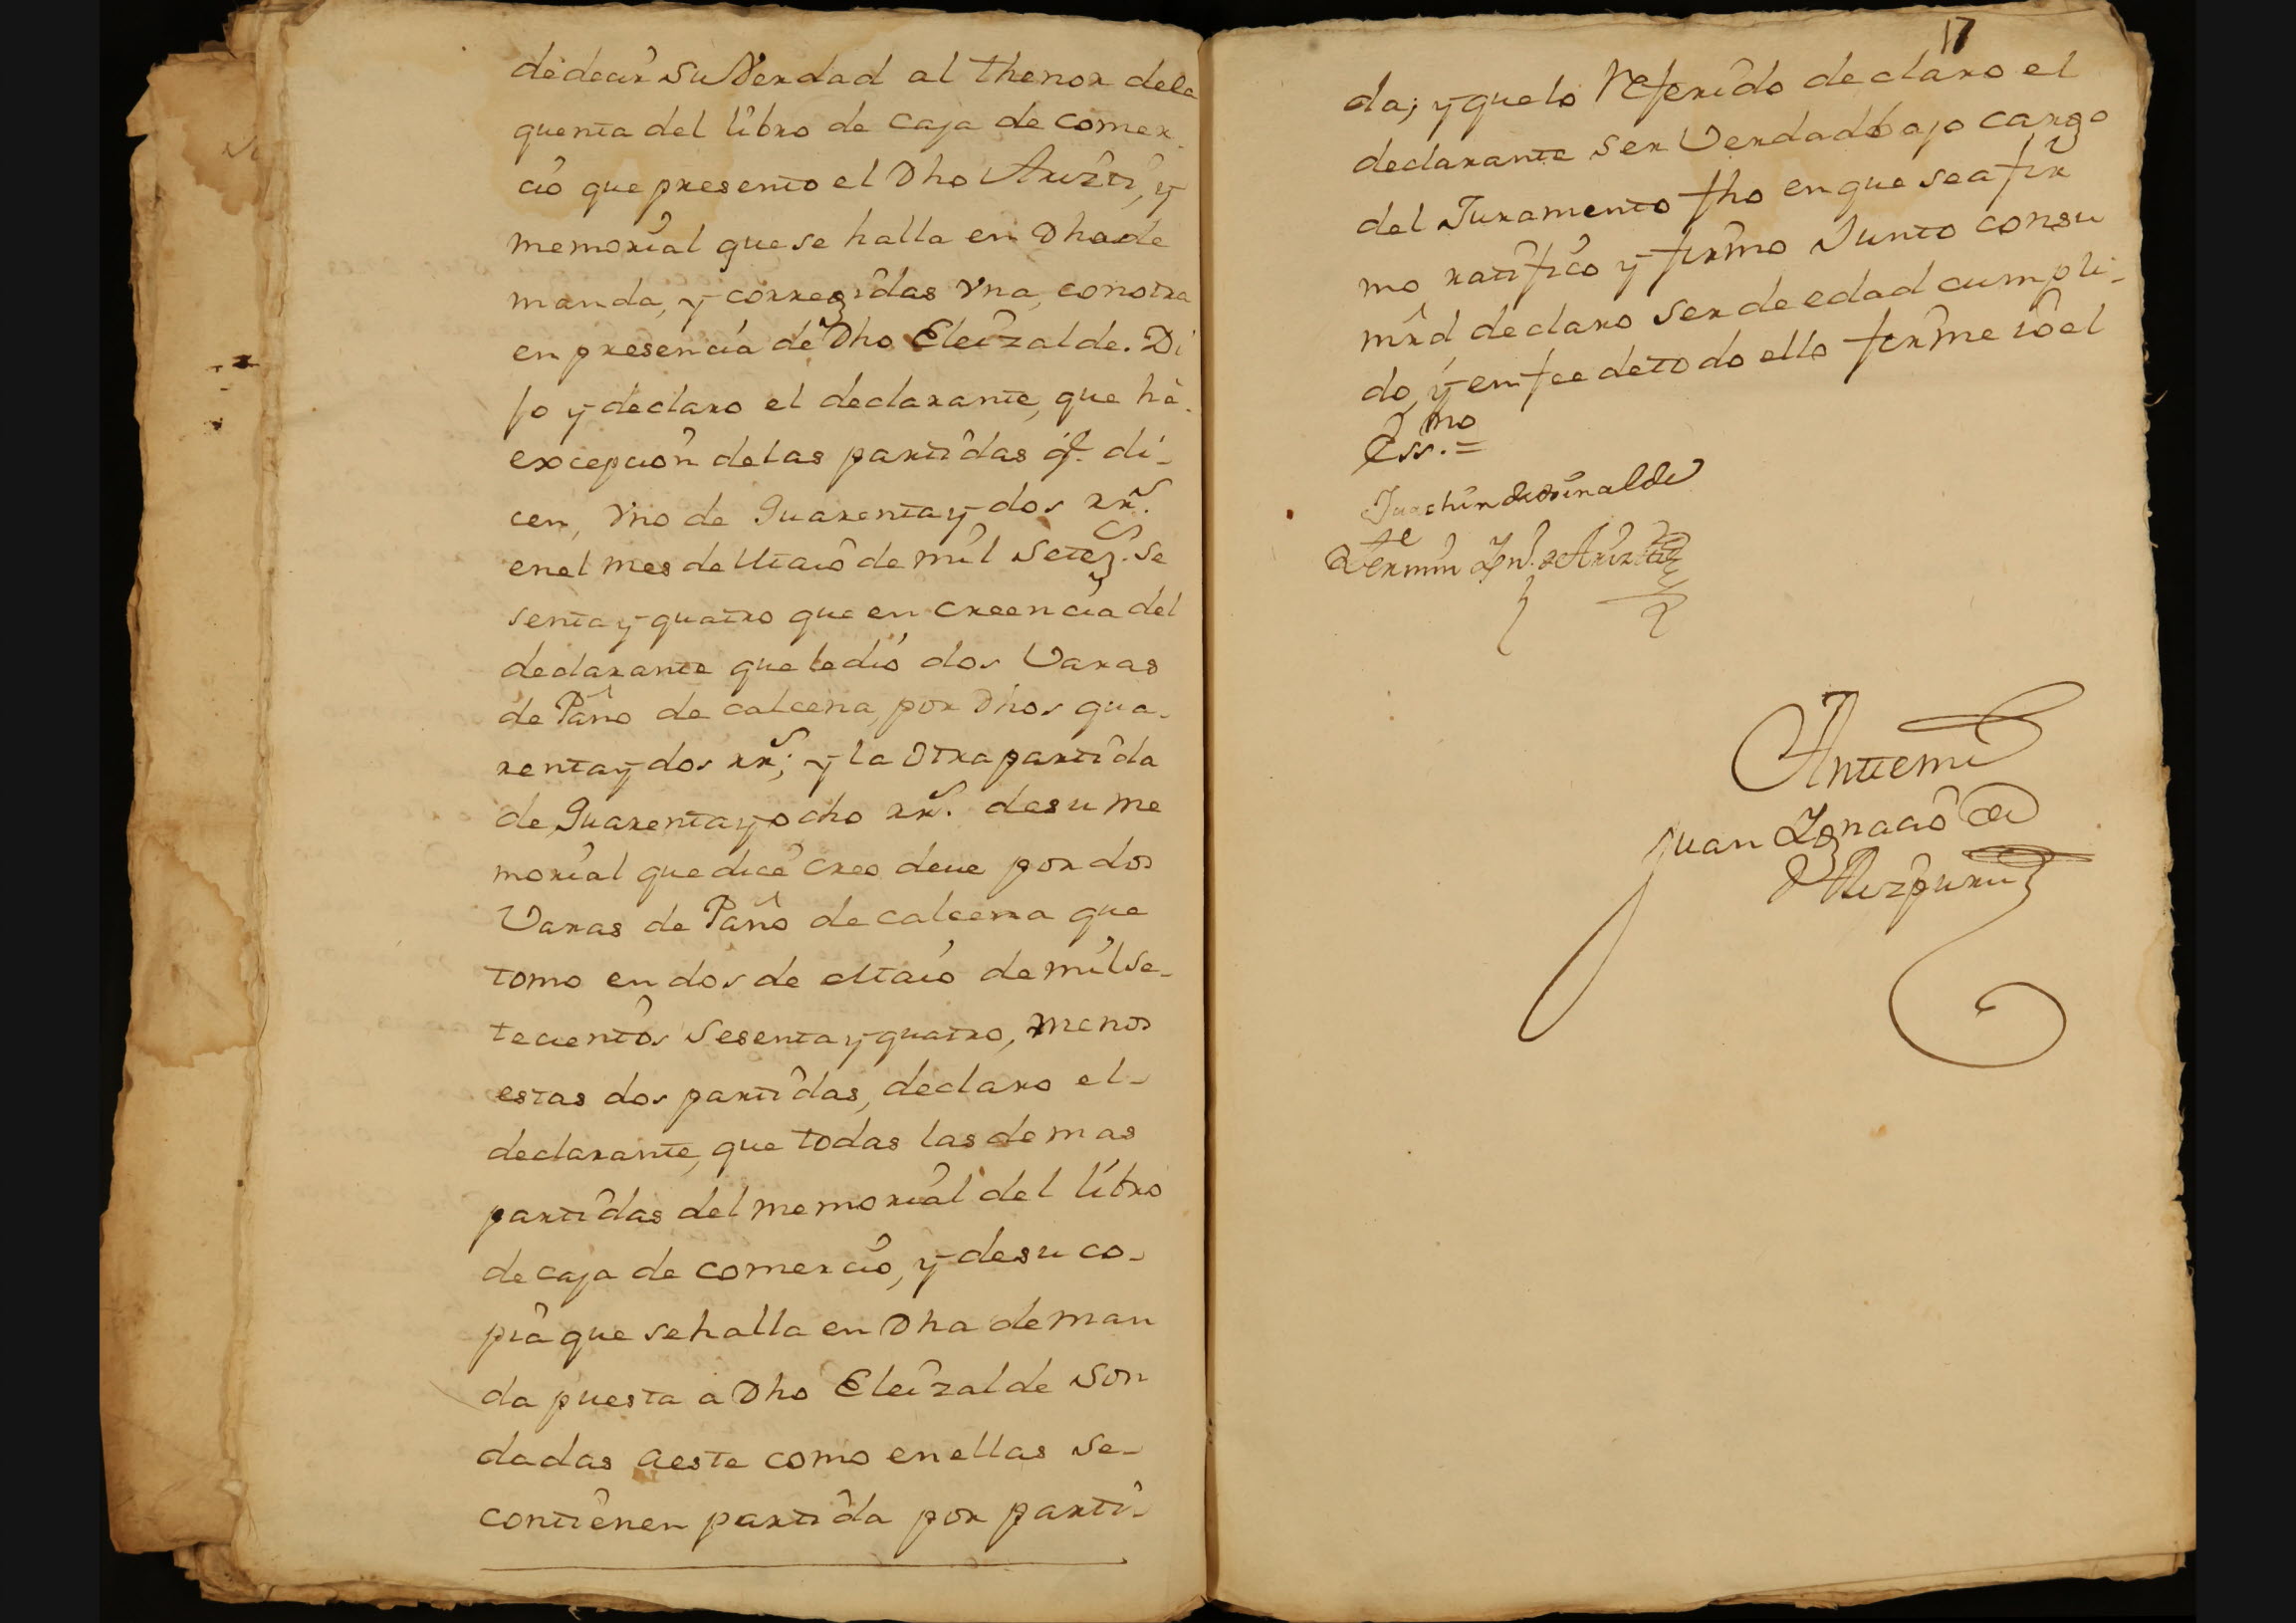 de decir su Verdad al thenor dela
quenta del libro de caja de comer-
cio que presento el Dho Arizti, y
memorial que se halla en Dha de
manda, y corregidas vna, con otra
en presencia de Dho Eleizalde. Di
jo y declaro el declarante, que hà
excepcion delas partidas q.e di-
cen, vno de Quarenta y dos rr.s
en el mes de Maio de mil Setez.s se
senta y quatro que en creencia del
declarante que le dió dos Varas
de Paño de calcena, por Dhos qua-
renta y dos rr.s; y la otra partida
de Quarenta y ocho rr.s de su me
morial que dice creo deve por dos
Varas de Paño de calcena que
tomo en dos de Maio de mil se-
tecientos Sesenta y quatro, menos
estas dos partidas, declaro el-
declarante, que todas las demas
partidas del memorial del libro
de caja de comercio, y de su co-
pia que se halla en Dha deman
da puesta a Dho Eleizalde son
dadas a este como en ellas se-
contienen partida por parti-
17
da; y que lo Referido declaro el
declarante ser Verdad bajo cargo
del Juramento fho en que se afir
mo ratifico y firmo Junto con su
mrd declaro ser de edad cumpli-
do, y en fee de todo ello firme io el
Ess.no =
Juachin de
Fermin Ign.o de Arizti
Ante mi
Juan Ignacio de
Aizpuru